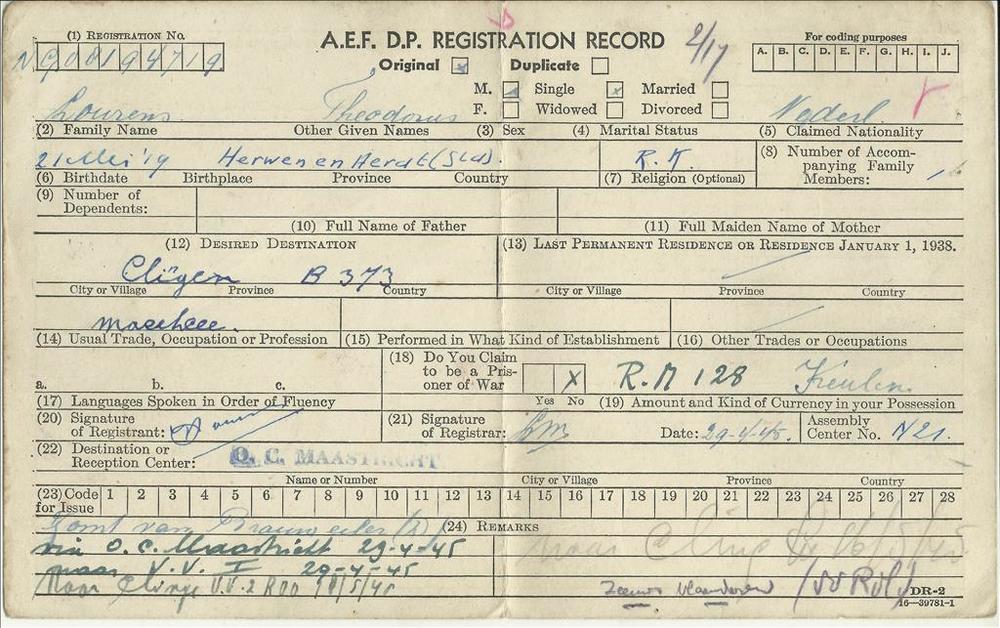 (1) REGISTRATION NO.
A.E.F. D.P. REGISTRATION RECORD
2/17
For coding purposes
A. B. C. D. E. F. G. H. I. J.
Original Duplicate
M. Single Married
F. Widowed Divorced
Lourens Theodorus Nederl.
(2) Family Name Other Given Names (3) Sex (4) Marital Status (5) Claimed Nationality
21 Mei '19 Herwen en Aerdt (Gld). R.K. (8) Number of Accompanying Family Members:
(6) Birthdate Birthplace Province Country (7) Religion (Optional)
(9) Number of Dependents:
(10) Full Name of Father (11) Full Maiden Name of Mother
(12) DESIRED DESTINATION (13) LAST PERMANENT RESIDENCE OR RESIDENCE JANUARY 1, 1938.
B 373
City or Village Province Country City or Village Province Country
(14) Usual Trade, Occupation or Profession (15) Performed in What Kind of Establishment (16) Other Trades or Occupations
(18) Do You Claim to be a Prisoner of War
X R.M 128 Keulen
a. b. c. Yes No
(17) Languages Spoken in Order of Fluency (19) Amount and Kind of Currency in your Possession
(20) Signature of Registrant: (21) Signature of Registrar: Date: 29-4-45. Assembly Center No. N21.
(22) Destination or Reception Center: O. C. MAASTRICHT
Name or Number City or Village Province Country
(23) Code for Issue 1 2 3 4 5 6 7 8 9 10 11 12 13 14 15 16 17 18 19 20 21 22 23 24 25 26 27 28
Komt van Brauweiler (24) REMARKS
via O.C. Maastricht 29-4-45
naar V.V. I 29-4-45
Naar Clinge V.V.2 /5/45 Zeeuws Vlaanderen
DR-2
16—39781-1